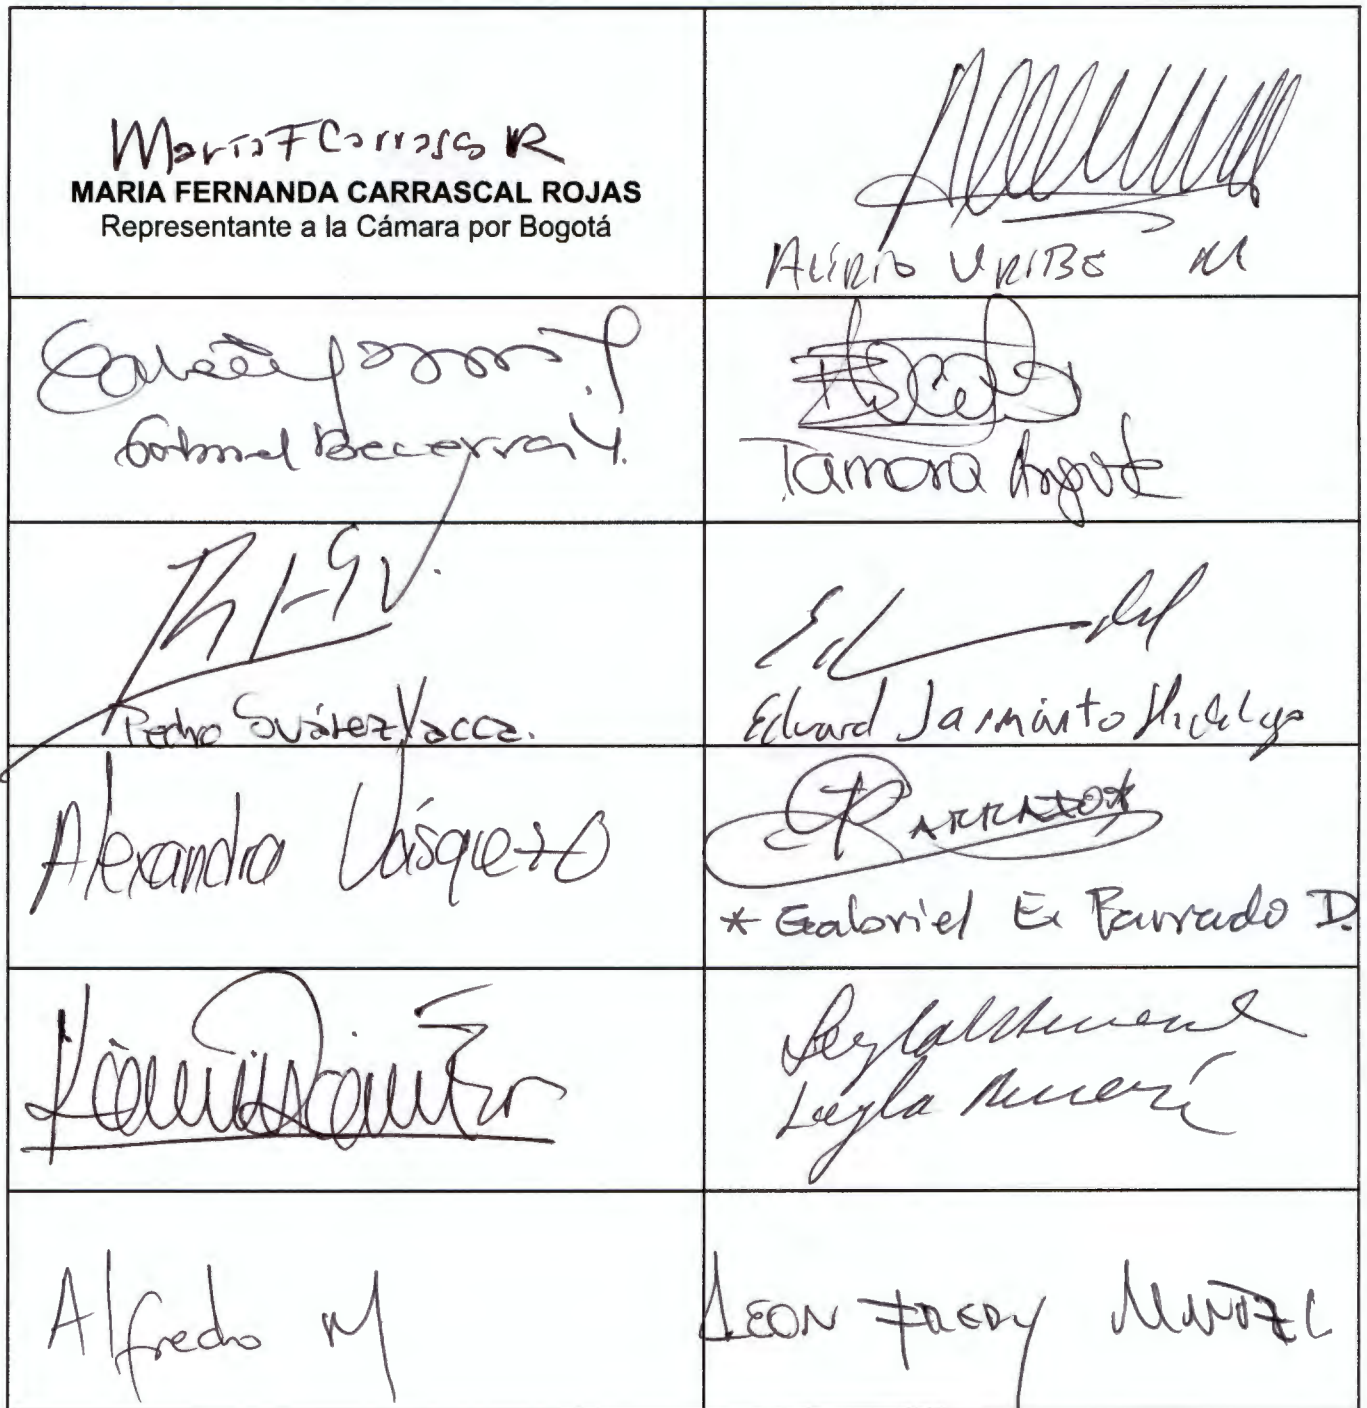 Maria F Carrasca R
MARIA FERNANDA CARRASCAL ROJAS
Representante a la Cámara por Bogotá
Alirio URIBE M
Gabriel Becerra Y.
Tamara Argote
Pedro Suárez Vacca.
Eduard Sarmiento Hidalgo
Alexandra Vásquez O
PARRADO*
* Gabriel E. Parrado D.
Leyla
Alfredo M
LEON FREDY MUÑOZ L